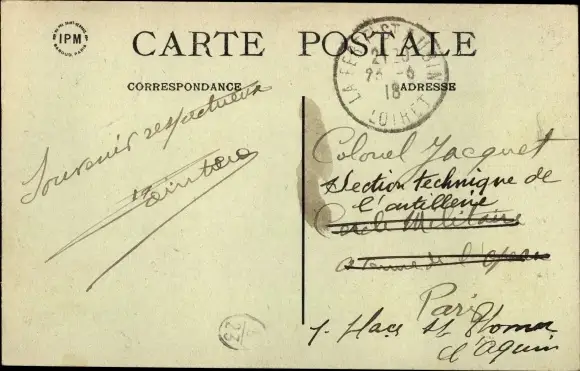 IPM
CARTE POSTALE
CORRESPONDANCE
ADRESSE
LA FERTE ST AUBIN
23 -6
18
LOIRET
Souvenir respectueux
Colonel Jacquet
Section technique de
l'artillerie
Cercle Militaire
avenue de l'Opera
Paris
1. Place St Thomas
d'Aquin
23